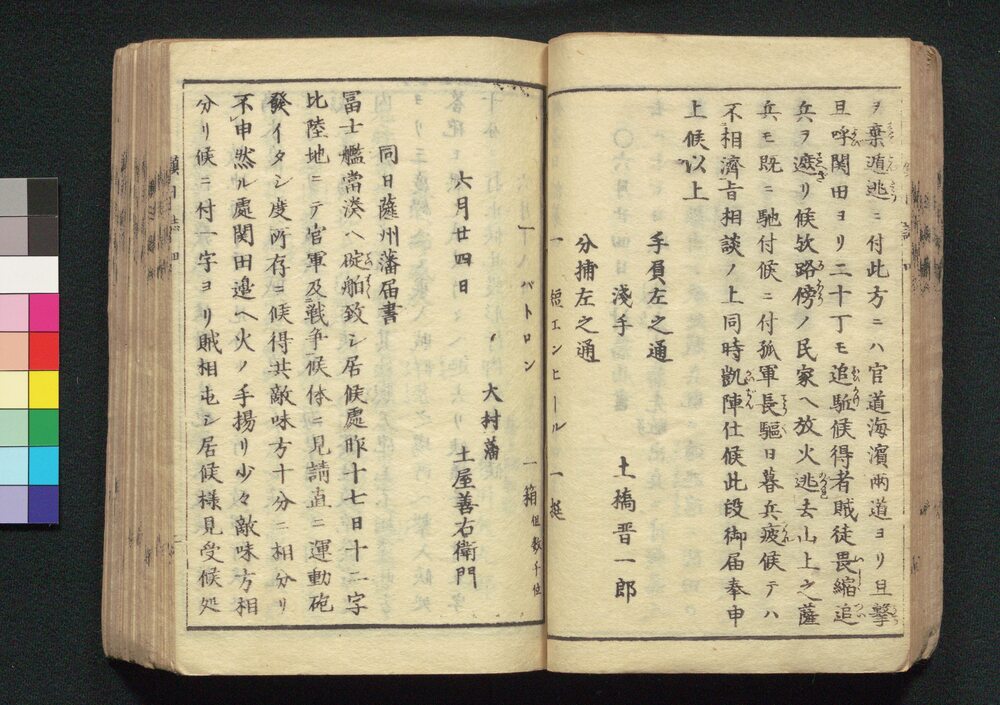 ヲ棄遁逃ニ付此方ニハ官道海濱両道ヨリ且撃
且呼関田ヨリ二十丁モ追駈候得者賊徒畏縮追
兵ヲ遮リ候欤路傍ノ民家ヘ放火逃去山上之薩
兵モ既ニ馳付候ニ付孤軍長驅日暮兵疲候テハ
不相濟旨相談ノ上同時凱陣仕候此段御届奉申
上候以上
手負左之通
淺手 土橋晋一郎
分捕左之通
一 短エンヒール 一挺
一 パトロン 一箱 但数千位
大村藩
六月廿四日 土屋善右衛門
同日薩州藩届書
冨士艦當湊ヘ碇舶致シ居候處昨十七日十二字
比陸地ニテ官軍及戦争候体ニ見請直ニ運動砲
發イタシ度所存ヨ候得共敵味方十分ニ相分リ
不申然ル處関田邉ヘ火ノ手揚リ少々敵味方相
分リ候ニ付一字ヨリ賊相屯シ居候様見受候処